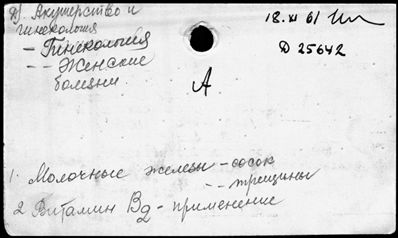 Д) Акушерство и
гинекология
18.XI 61
Д 25642
- Гинекология
-- Женские
болезни
А
1. Молочные железы - сосок
-- - трещины
2 Витамин В2 - применение